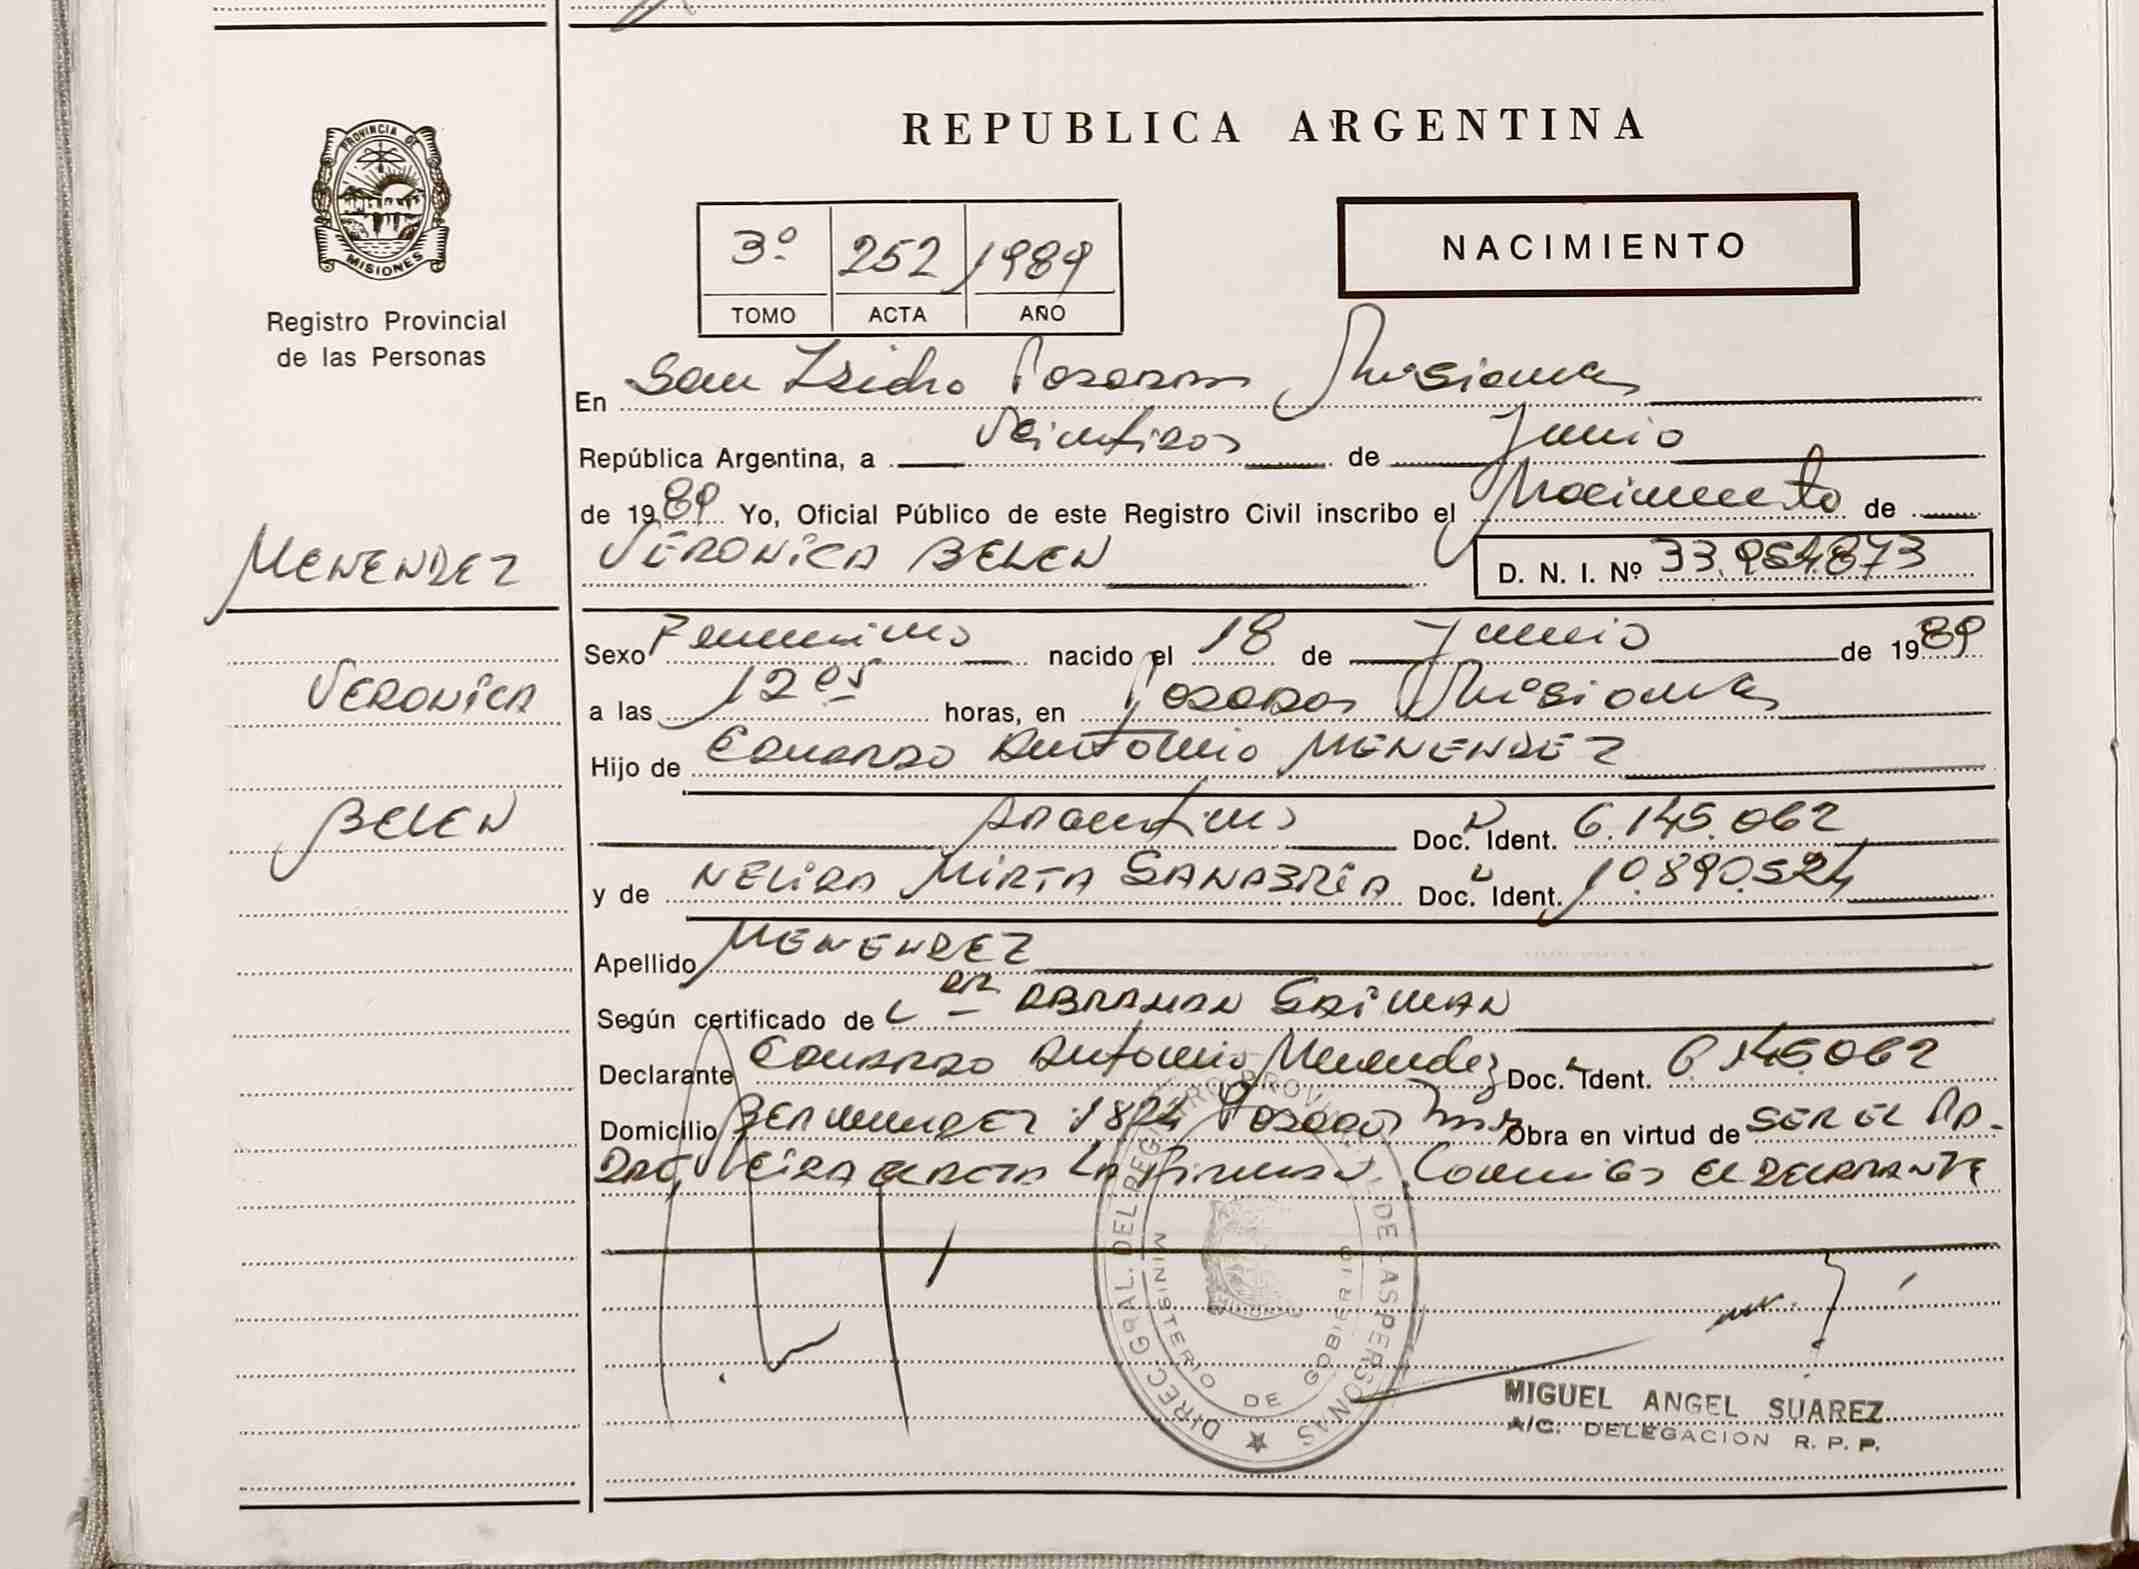 REPUBLICA ARGENTINA
PROVINCIA DE
MISIONES
Registro Provincial
de las Personas
NACIMIENTO
3º 252 1989
TOMO ACTA AÑO
En San Isidro Posadas Misiones
República Argentina, a Veintidos de Junio
de 1989 Yo, Oficial Público de este Registro Civil inscribo el Nacimiento de
MENENDEZ
VERONICA BELEN D. N. I. Nº 33.954.873
Sexo Femenino nacido el 18 de Junio de 1989
VERONICA
a las 12 05 horas, en Posadas Misiones
Hijo de EDUARDO Antonio MENENDEZ
BELEN
Argentino Doc. Ident. 6.145.062
y de NELIDA MIRTA SANABRIA Doc. Ident. 10.890.524
Apellido MENENDEZ
Según certificado de DR ABRAHAN
Declarante EDUARDO Antonio Menendez Doc. Ident. 6.145.062
Domicilio 1824 Posadas Mnes Obra en virtud de SER EL PA-
DRE, LEIDA EL ACTA LA FIRMAN Conmigo EL DECLARANTE
DIREC. GRAL. DEL REGISTRO PROVINCIAL DE LAS PERSONAS
MINISTERIO DE GOBIERNO
MIGUEL ANGEL SUAREZ
A/C. DELEGACION R. P. P.